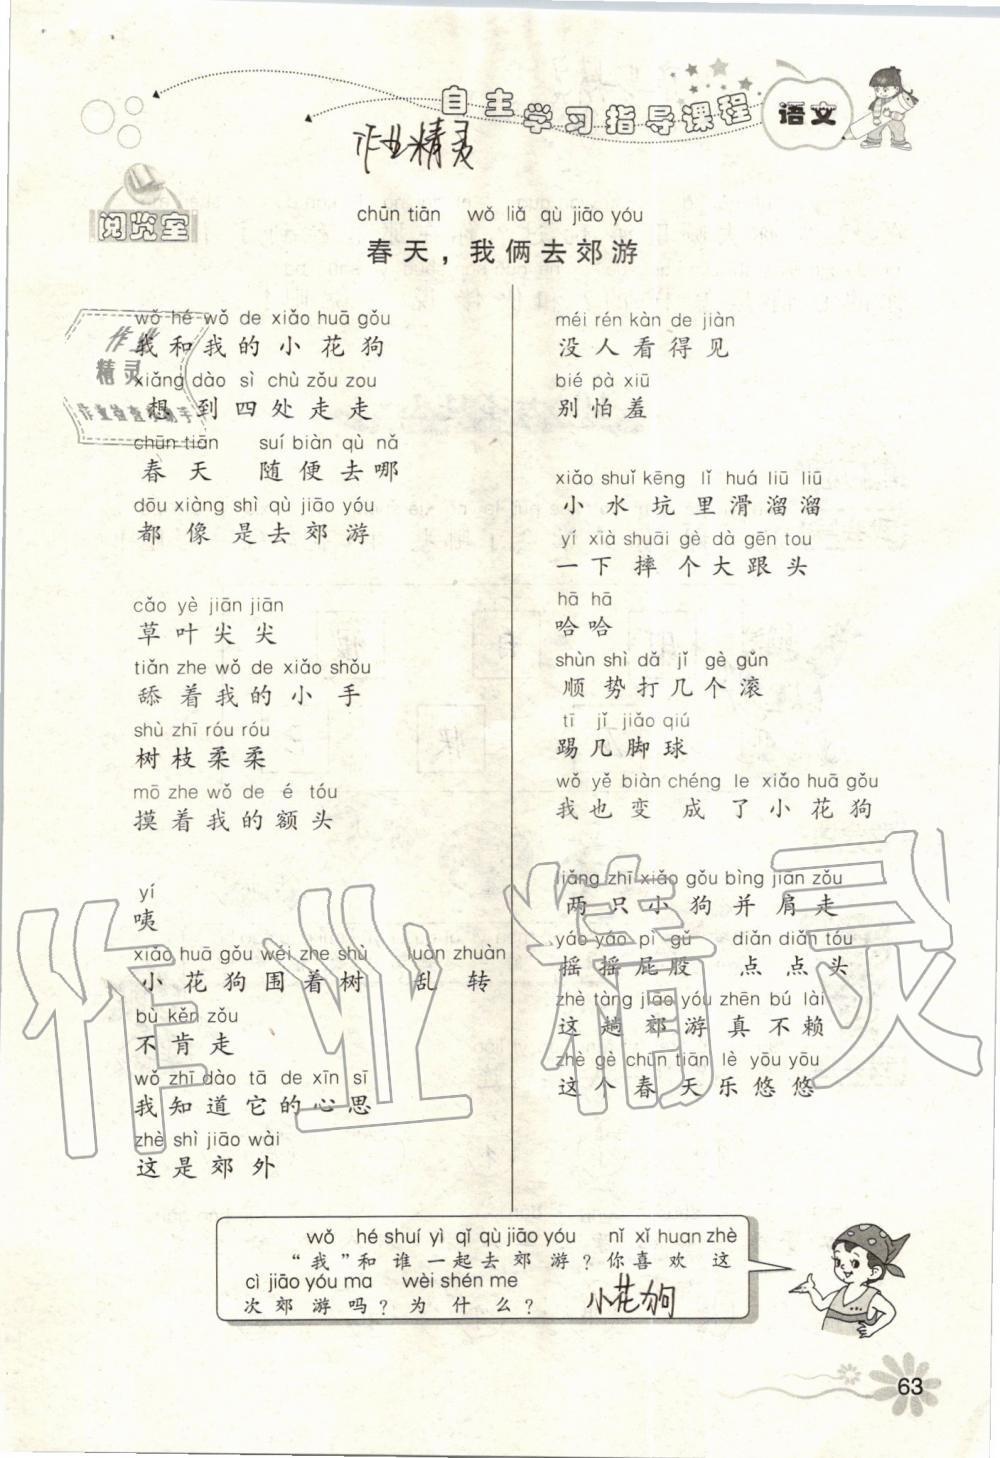 自主学习指导课程 语文
作业精灵
阅览室
chūn tiān wǒ liǎ qù jiāo yóu
春天，我俩去郊游
wǒ hé wǒ de xiǎo huā gǒu
我和我的小花狗
xiǎng dào sì chù zǒu zou
想到四处走走
chūn tiān suí biàn qù nǎ
春天 随便去哪
dōu xiàng shì qù jiāo yóu
都像是去郊游
cǎo yè jiān jiān
草叶尖尖
tiǎn zhe wǒ de xiǎo shǒu
舔着我的小手
shù zhī róu róu
树枝柔柔
mō zhe wǒ de é tóu
摸着我的额头
yí
咦
xiǎo huā gǒu wéi zhe shù luàn zhuàn
小花狗围着树 乱转
bù kěn zǒu
不肯走
wǒ zhī dào tā de xīn sī
我知道它的心思
zhè shì jiāo wài
这是郊外
méi rén kàn de jiàn
没人看得见
bié pà xiū
别怕羞
xiǎo shuǐ kēng lǐ huá liū liū
小水坑里滑溜溜
yí xià shuāi gè dà gēn tou
一下摔个大跟头
hā hā
哈哈
shùn shì dǎ jǐ gè gǔn
顺势打几个滚
tī jǐ jiǎo qiú
踢几脚球
wǒ yě biàn chéng le xiǎo huā gǒu
我也变成了小花狗
liǎng zhī xiǎo gǒu bìng jiān zǒu
两只小狗并肩走
yáo yáo pì gǔ diǎn diǎn tóu
摇摇屁股 点点头
zhè tàng jiāo yóu zhēn bú lài
这趟郊游真不赖
zhè gè chūn tiān lè yōu yōu
这个春天乐悠悠
wǒ hé shuí yì qǐ qù jiāo yóu nǐ xǐ huan zhè
“我”和谁一起去郊游？你喜欢这
cì jiāo yóu ma wèi shén me
次郊游吗？为什么？ 小花狗
63
作业
精灵
作业检查小助手
作业精灵